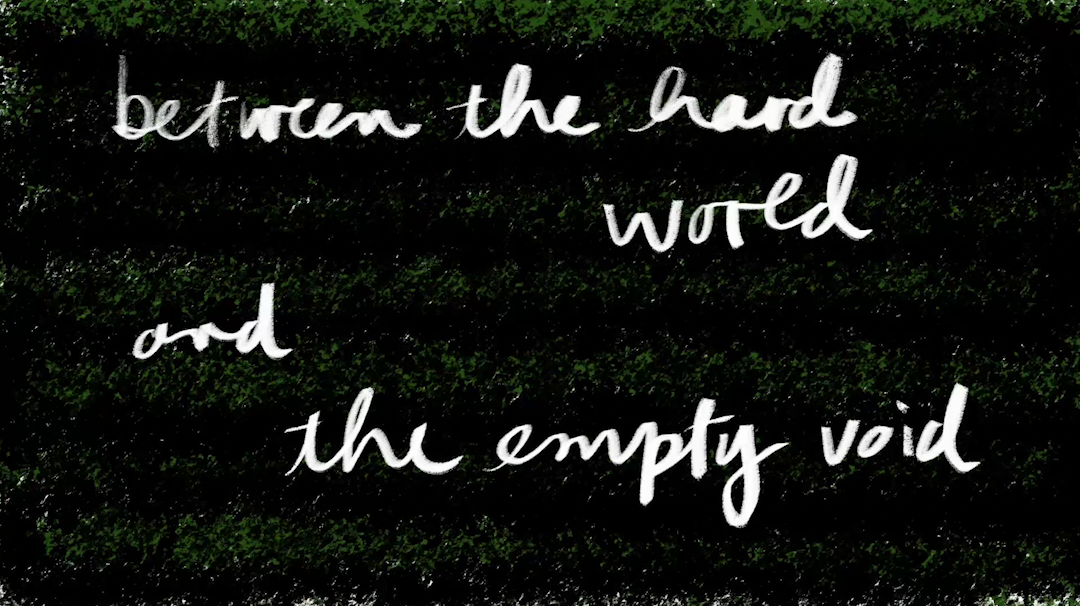 between the hard
world
and
the empty void